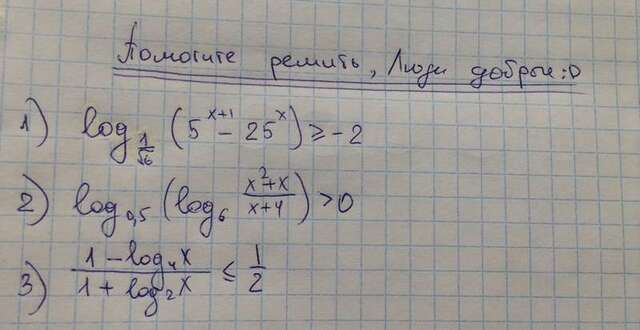 Помогите решить, Люди добрые :D
1) log_{1/√6} (5^{x+1} - 25^x) ≥ -2
2) log_{0,5} (log_6 \frac{x^2+x}{x+4}) > 0
3) \frac{1 - log_4 x}{1 + log_2 x} ≤ \frac{1}{2}